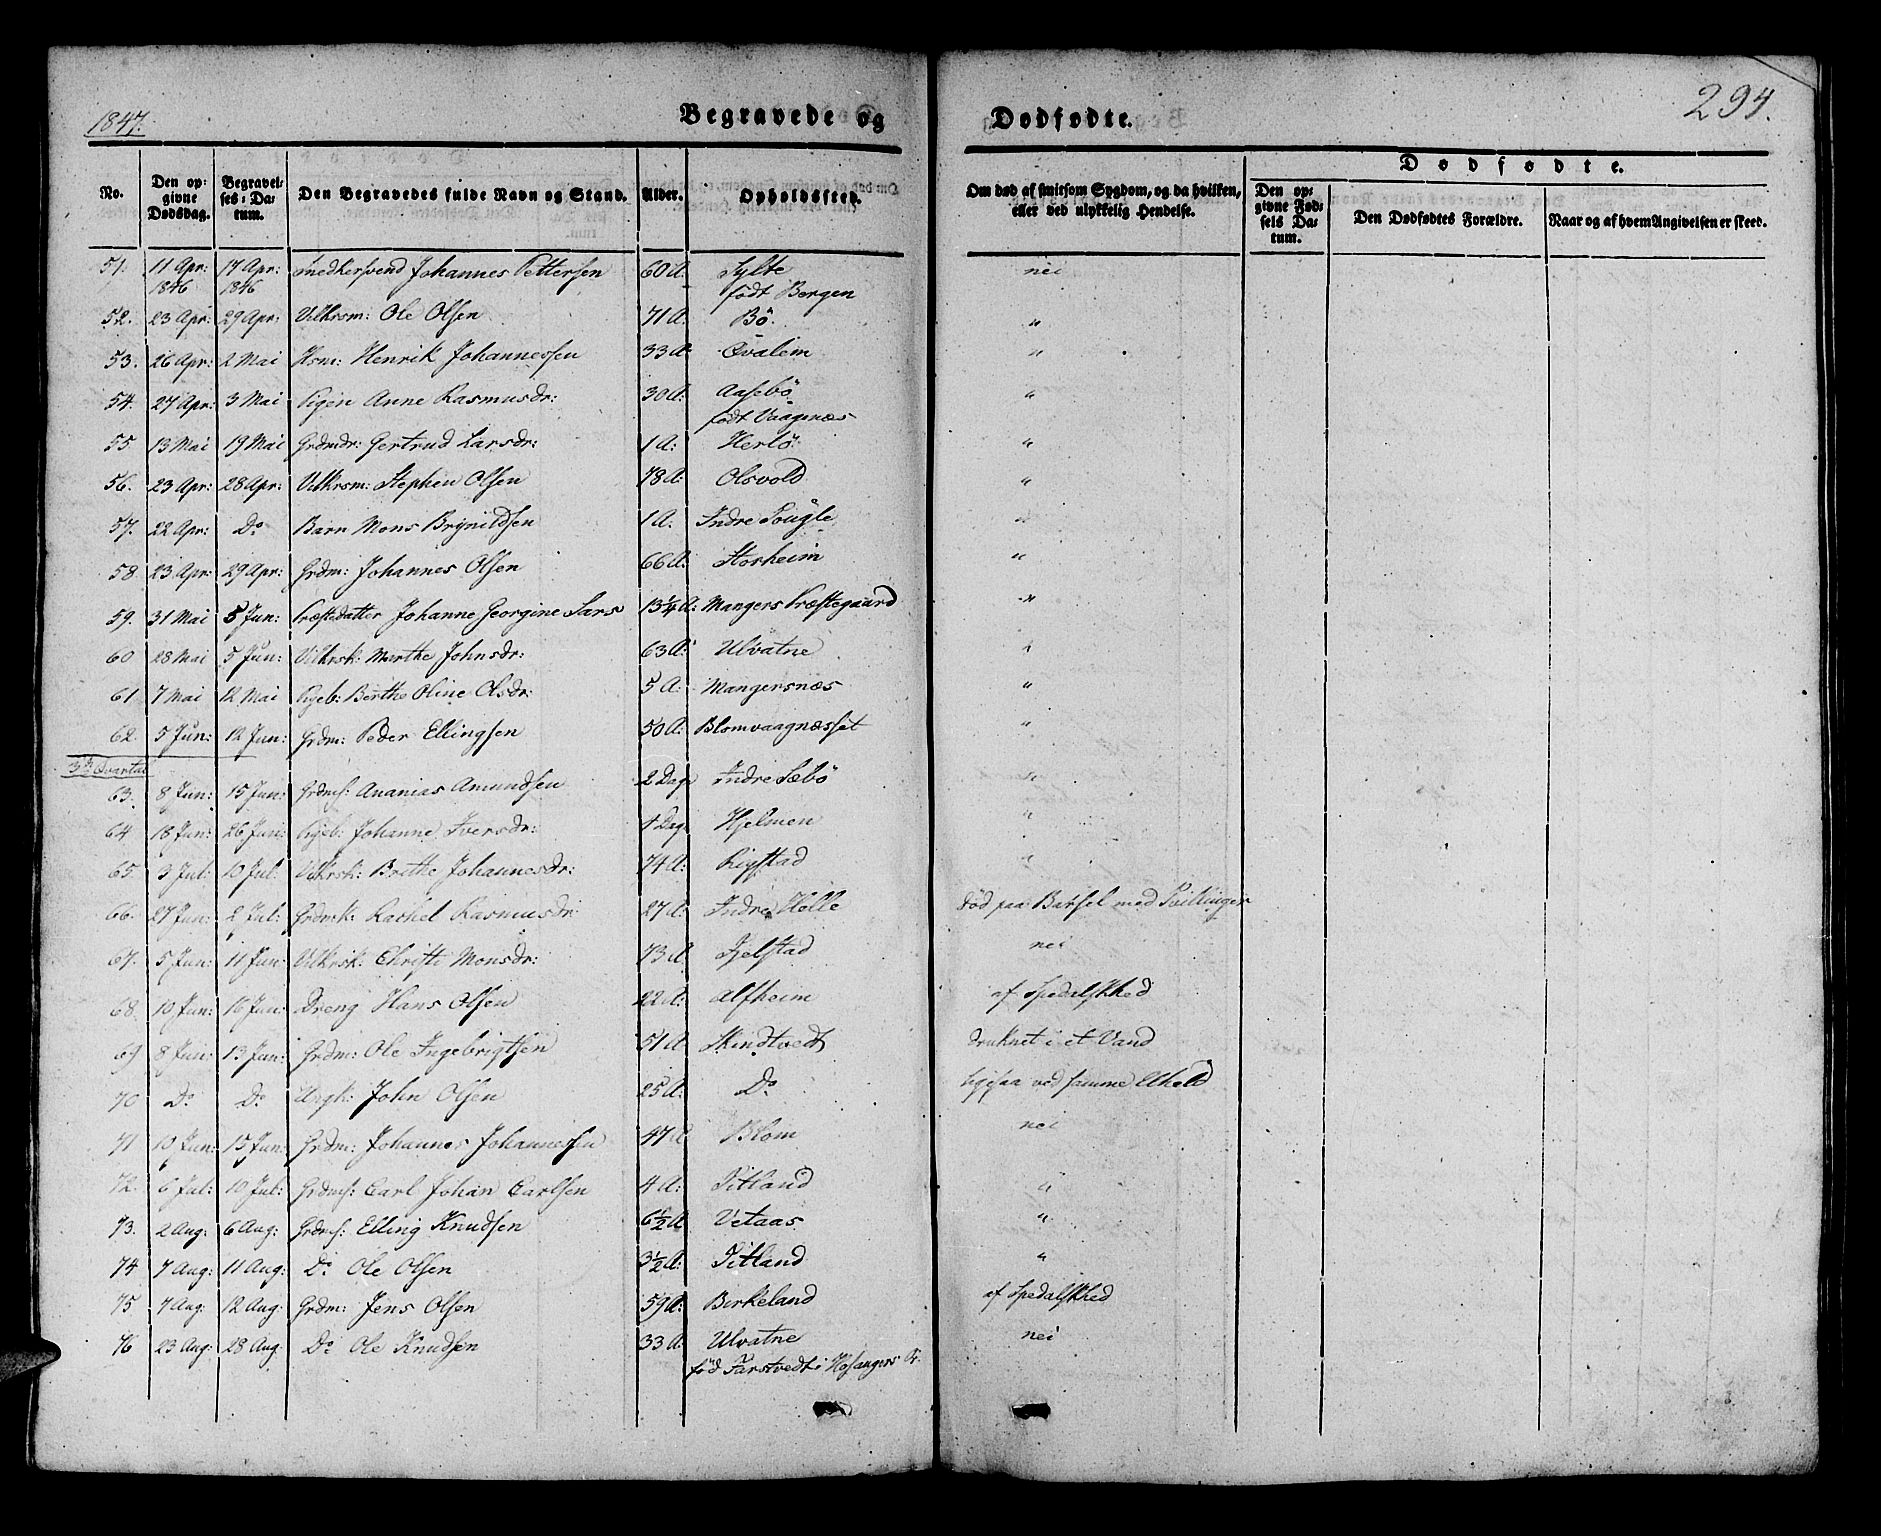 1847.
Begravede og Dødfødte.
294.
No.
Den opgivne Dødsdag.
Begravelses-Datum.
Den Begravedes fulde Navn og Stand.
Alder.
Opholdssted.
Om død af smitsom Sygdom, og da hvilken, eller ved ulykkelig Hendelse.
Dødfødte.
Den opgivne Fødsels Datum.
Den Dødfødtes Forældre.
Naar og af hvem Angivelsen er skeed.
51. 11 Apr: 1846 17 Apr: 1846 Snedkersvend Johannes Pettersen 60 A. Sylte nei
født Bergen
52. 23 Apr: 29 Apr: Vilkrsm: Ole Olsen 71 A. Bö. "
53. 26 Apr: 2 Mai Hsm: Henrik Johannessen 33 A. Qvalem "
54. 27 Apr: 3 Mai Pigen Anne Rasmusdr: 30 A. Aasebö "
født Vaagenæs
55 13 Mai 19 Mai Grdmdr: Gertrud Larsdr: 1 A: Herlö "
56. 23 Apr: 28 Apr: Vilkrsm: Stephen Olsen 78 A. Olsvold "
57. 22 Apr: Do Barn Mons Brynildsen 1 A. Indre Sougle "
58 23 Apr: 29 Apr: Grdm: Johannes Olsen 66 A. Storheim "
59. 31 Mai 5 Jun: Præstedatter Johanne Georgine Sars 13¼ A: Mangers Præstegaard "
60 28 Mai 5 Jun: Vilkrsk: Marthe Johnsdr: 63 A. Ulvatne "
61 7 Mai 12 Mai Pigeb: Berthe Oline Olsdr: 5 A: Mangersnæs "
62. 5 Jun: 12 Jun: Grdm: Peder Ellingsen 50 A: Blomvaagnæsset "
3die Qvartal
63. 8 Jun: 15 Jun: Grdms: Ananias Amundsen 2 Dage Indre Sæbö "
64 18 Jun: 26 Jun: Pigeb: Johanne Iversdr: 1 Dag Hjelmen "
65. 3 Jul: 10 Jul: Vilkrsk: Brithe Johannesdr: 74 A: Rigstad "
66. 27 Jun: 2 Jul: Grdmk: Rachel Rasmusdr: 27 A: Indre Helle død paa Barsel med Tvillinger
67. 5 Jun: 11 Jun: Vilkrsk: Christi Monsdr: 73 A. Fjelstad nei
68. 10 Jun: 16 Jun: Dreng Hans Olsen 22 A: Alfheim af Spedalskhed
69 8 Jun: 13 Jun: Grdm: Ole Ingebrigtsen 51 A Skindtvedt druknet i et Vand
70 Do Do Ungk: John Olsen 25 A: Do ligesaa ved samme Uheld
71 10 Jun: 15 Jun: Grdm: Johannes Johannessen 47 A Blom nei
72. 6 Jul: 10 Jul: Grdms: Carl Johan Carlsen 4 A: Titland "
73. 2 Aug: 6 Aug: Grdms: Elling Knudsen 6½ A Vetaas "
74 7 Aug: 11 Aug: Do Ole Olsen 3½ A: Titland "
75 7 Aug: 12 Aug: Grdm: Jens Olsen 59 A: Birkeland af Spedalskhed
76 23 Aug: 28 Aug: Do Ole Knudsen 33 A. Ulvatne nei
fød Farstvedt i Hosangers Pr.